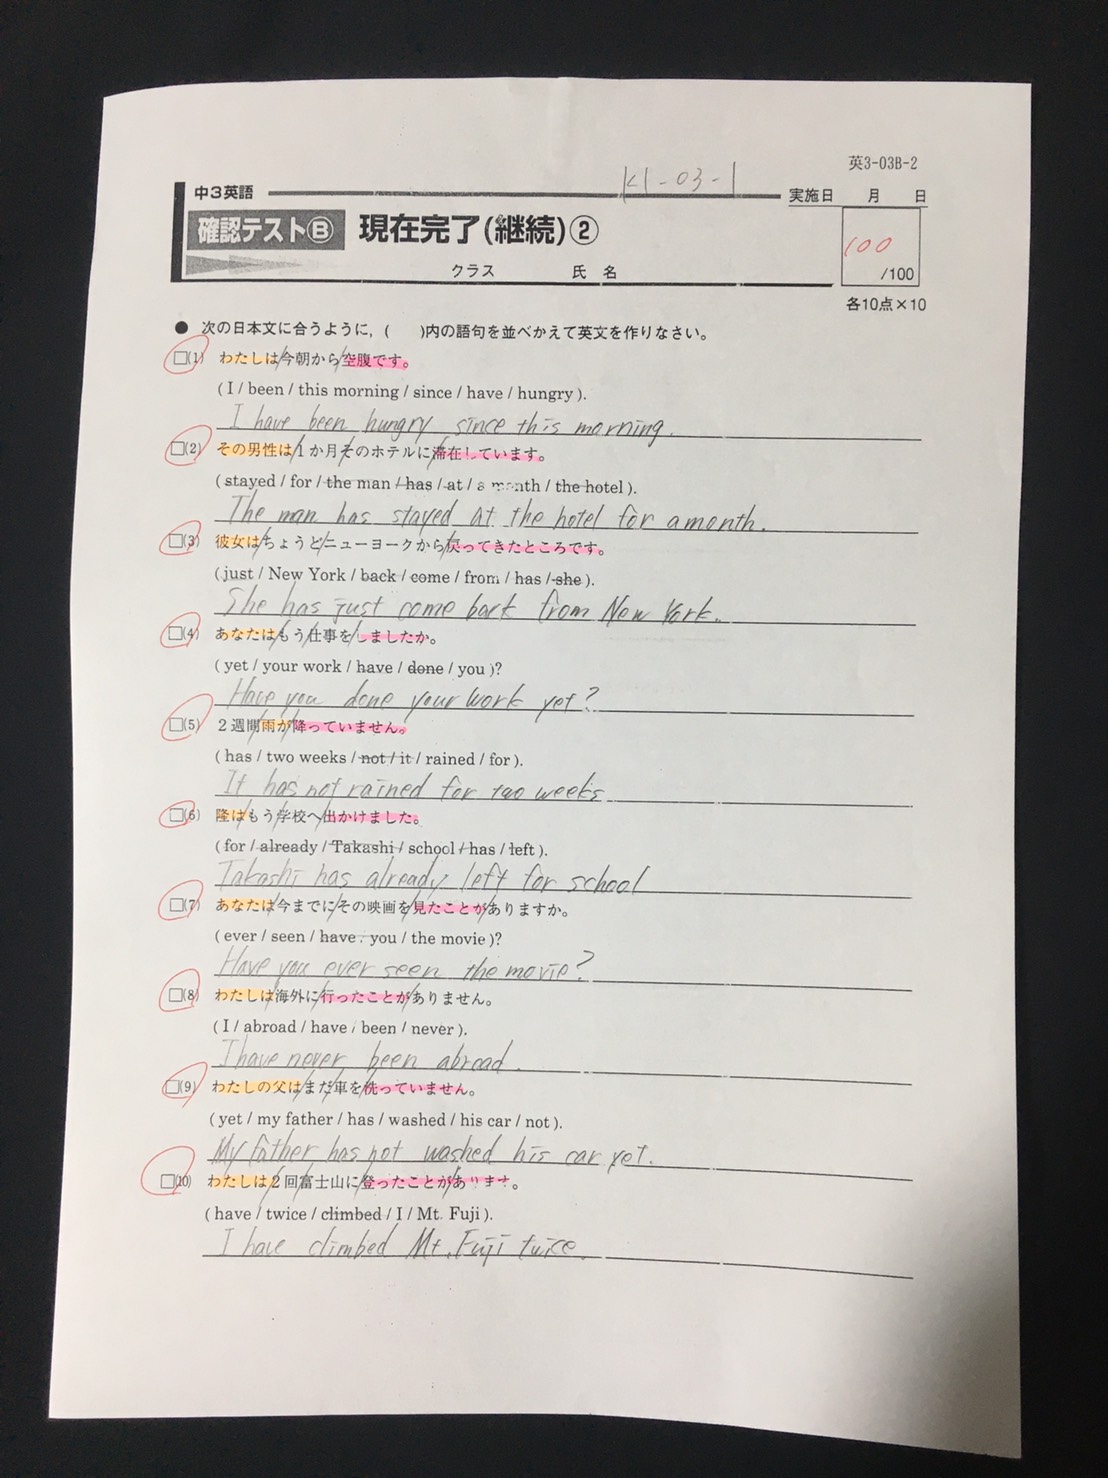 英3-03B-2
K1-03-1
中3英語
実施日 月 日
確認テストⒷ 現在完了(継続)②
100
/100
クラス 氏名
各10点×10
● 次の日本文に合うように,( )内の語句を並べかえて英文を作りなさい。
□(1) わたしは/今朝から/空腹です。
( I / been / this morning / since / have / hungry ).
I have been hungry since this morning.
□(2) その男性は/1か月/そのホテルに/滞在しています。
( stayed / for / the man / has / at / a month / the hotel ).
The man has stayed at the hotel for a month.
□(3) 彼女は/ちょうど/ニューヨークから/戻ってきたところです。
( just / New York / back / come / from / has / she ).
She has just come back from New York.
□(4) あなたは/もう/仕事を/しましたか。
( yet / your work / have / done / you )?
Have you done your work yet?
□(5) 2週間/雨が/降っていません。
( has / two weeks / not / it / rained / for ).
It has not rained for two weeks
□(6) 隆は/もう/学校へ/出かけました。
( for / already / Takashi / school / has / left ).
Takashi has already left for school
□(7) あなたは/今までに/その映画を/見たことが/ありますか。
( ever / seen / have / you / the movie )?
Have you ever seen the movie?
□(8) わたしは/海外に/行ったことが/ありません。
( I / abroad / have / been / never ).
I have never been abroad.
□(9) わたしの父は/まだ/車を/洗っていません。
( yet / my father / has / washed / his car / not ).
My father has not washed his car yet.
□(10) わたしは/2回/富士山に/登ったことが/あります。
( have / twice / climbed / I / Mt. Fuji ).
I have climbed Mt. Fuji twice.